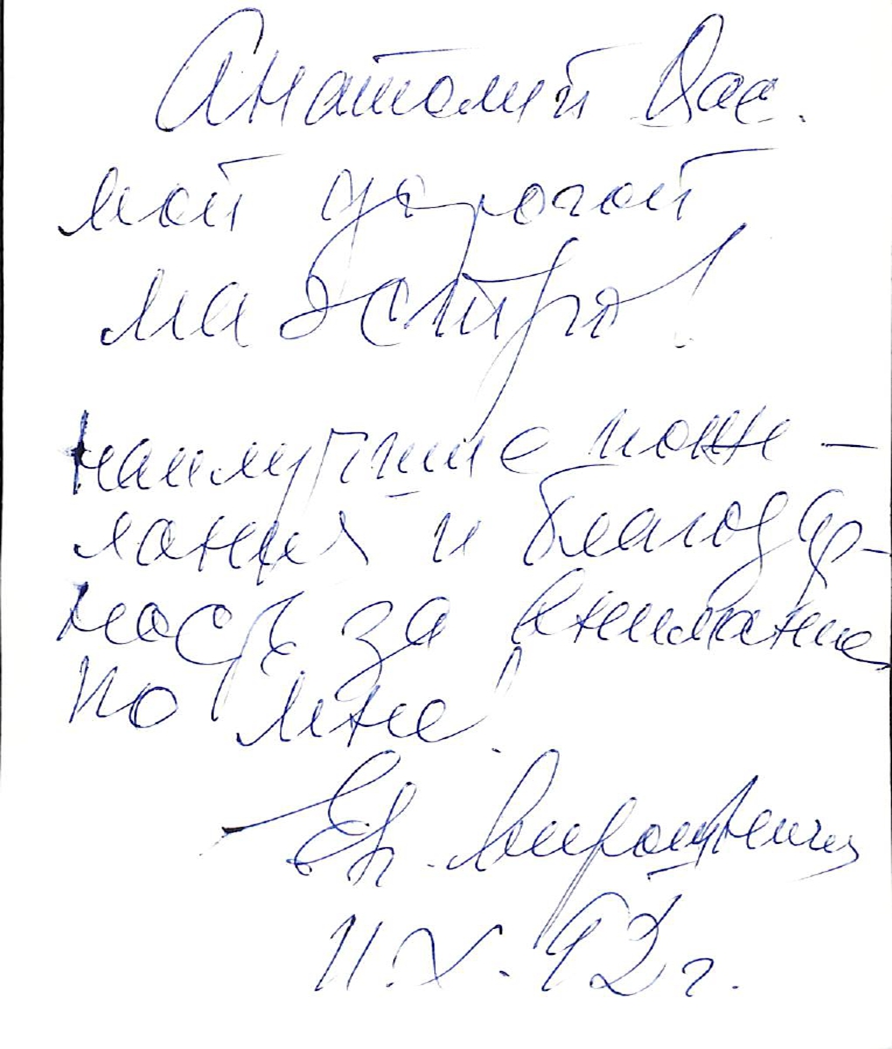 Анатолий Вас.
мой дорогой
маэстро!
наилучшие поже–
лания и благодар–
ность за внимание
ко мне!
Ев. Мирошниченко
11.X.92 г.